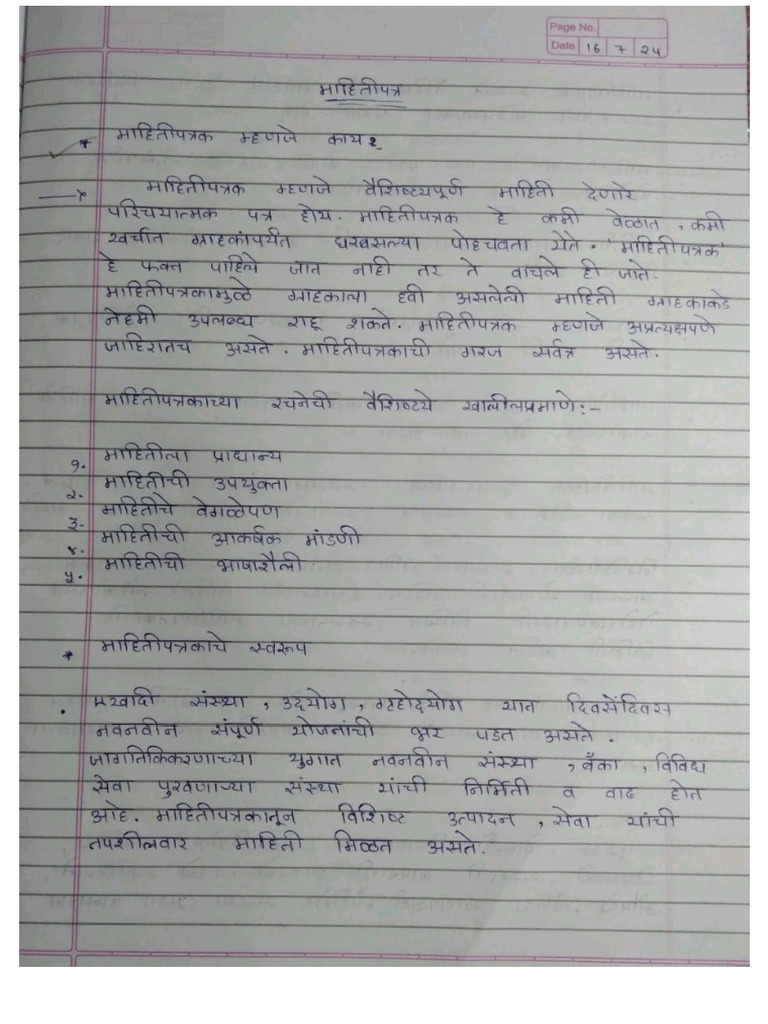 Page No.
Date 16 7 24
माहितीपत्र
* माहितीपत्रक म्हणजे काय?
माहितीपत्रक म्हणजे वैशिष्ट्यपूर्ण माहिती देणारे
परिचयात्मक पत्र होय. माहितीपत्रक हे कमी वेळात , कमी
खर्चात ग्राहकांपर्यंत घरबसल्या पोहचवता येते. 'माहितीपत्रक'
हे फक्त पाहिले जात नाही तर ते वाचले ही जाते.
माहितीपत्रकामुळे ग्राहकाला हवी असलेली माहिती ग्राहकाकडे
नेहमी उपलब्ध राहू शकते. माहितीपत्रक म्हणजे अप्रत्यक्षपणे
जाहिरातच असते. माहितीपत्रकाची गरज सर्वत्र असते.
माहितीपत्रकाच्या रचनेची वैशिष्टये खालीलप्रमाणे:-
१. माहितीला प्राधान्य
२. माहितीची उपयुक्ता
३. माहितीचे वेगळेपण
४. माहितीची आकर्षक मांडणी
५. माहितीची भाषाशैली
* माहितीपत्रकाचे स्वरूप
. एखादी संस्था , उदयोग , गृहोदयोग यात दिवसेंदिवस
नवनवीन संपूर्ण योजनांची भर पडत असते .
जागतिकिकरणाच्या युगात नवनवीन संस्था , बँका , विविध
सेवा पुरवणाच्या संस्था यांची निर्मिती व वाढ होत
आहे. माहितीपत्रकातून विशिष्ट उत्पादन , सेवा यांची
तपशीलवार माहिती मिळत असते.